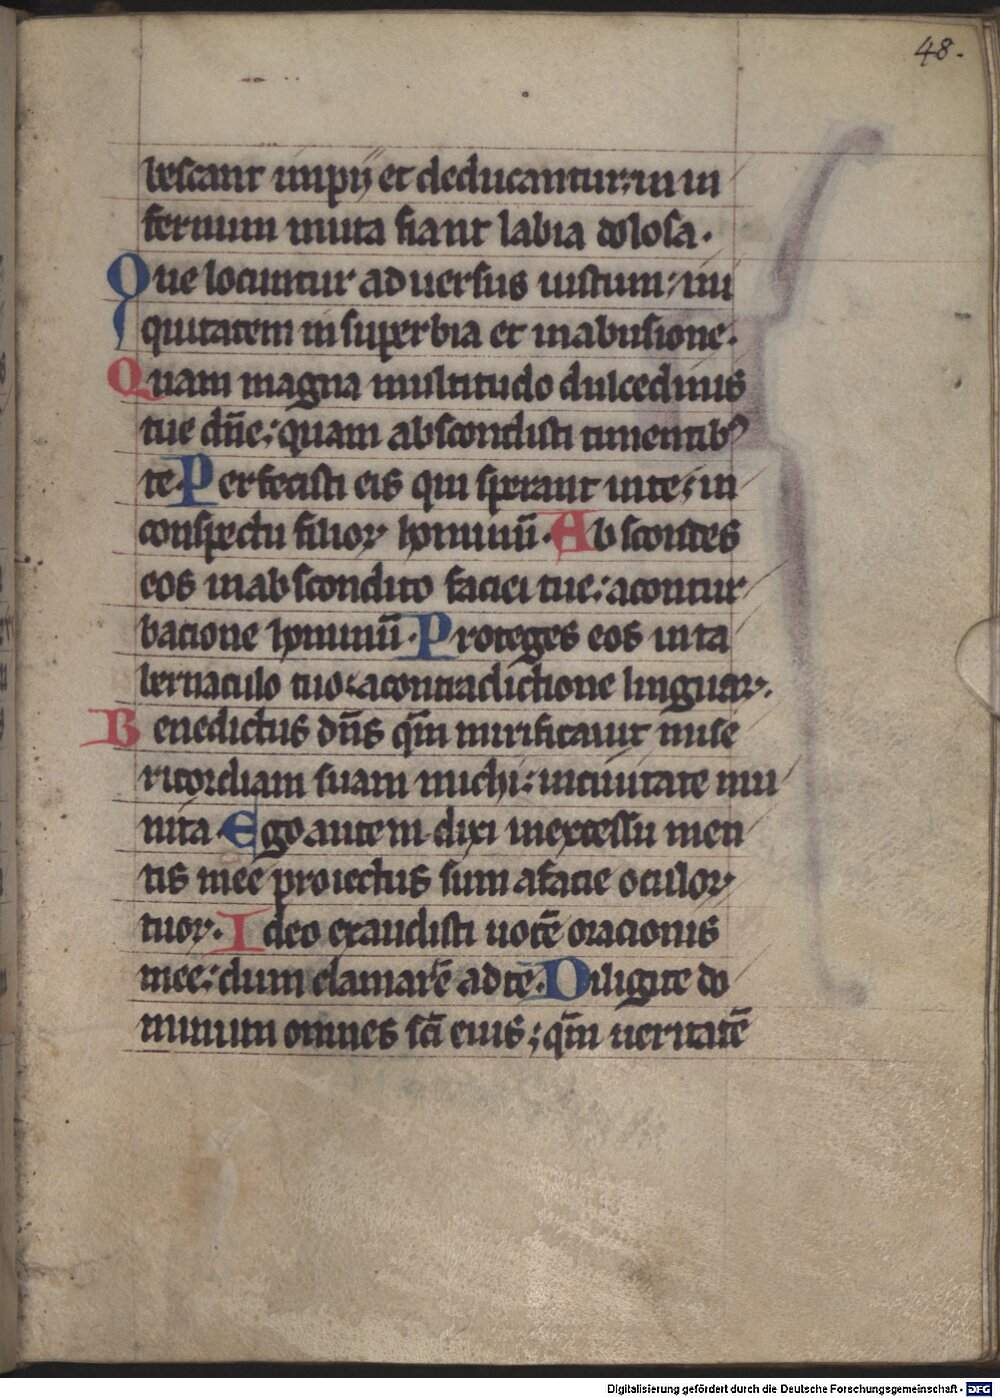 48.
bescant impij et deducantur; in in
fernum muta fiant labia dolosa.
Que locuntur aduersus iustum; ini
quitatem in superbia et inabusione.
Quam magna multitudo dulcedinis
tue dn̄e; quam abscondisti timentibꝰ
te. Perfecisti eis qui sperant inte; in
conspectu filioꝝ hominū. Abscondes
eos inabscondito faciei tue; acontur
bacione hominū. Proteges eos inta
bernaculo tuo; acontradictione linguaꝝ.
Benedictus dn̄s qm̄ mirificauit mise
ricordiam suam michi; inciuitate mu
nita. Ego autem dixi inexcessu men
tis mee proiectus sum afacie oculoꝝ
tuoꝝ. Ideo exaudisti uocē oracionis
mee; dum clamarē adte. Diligite do
minum omnes sc̄i eius; qm̄ ueritatē
Digitalisierung gefördert durch die Deutsche Forschungsgemeinschaft - DFG